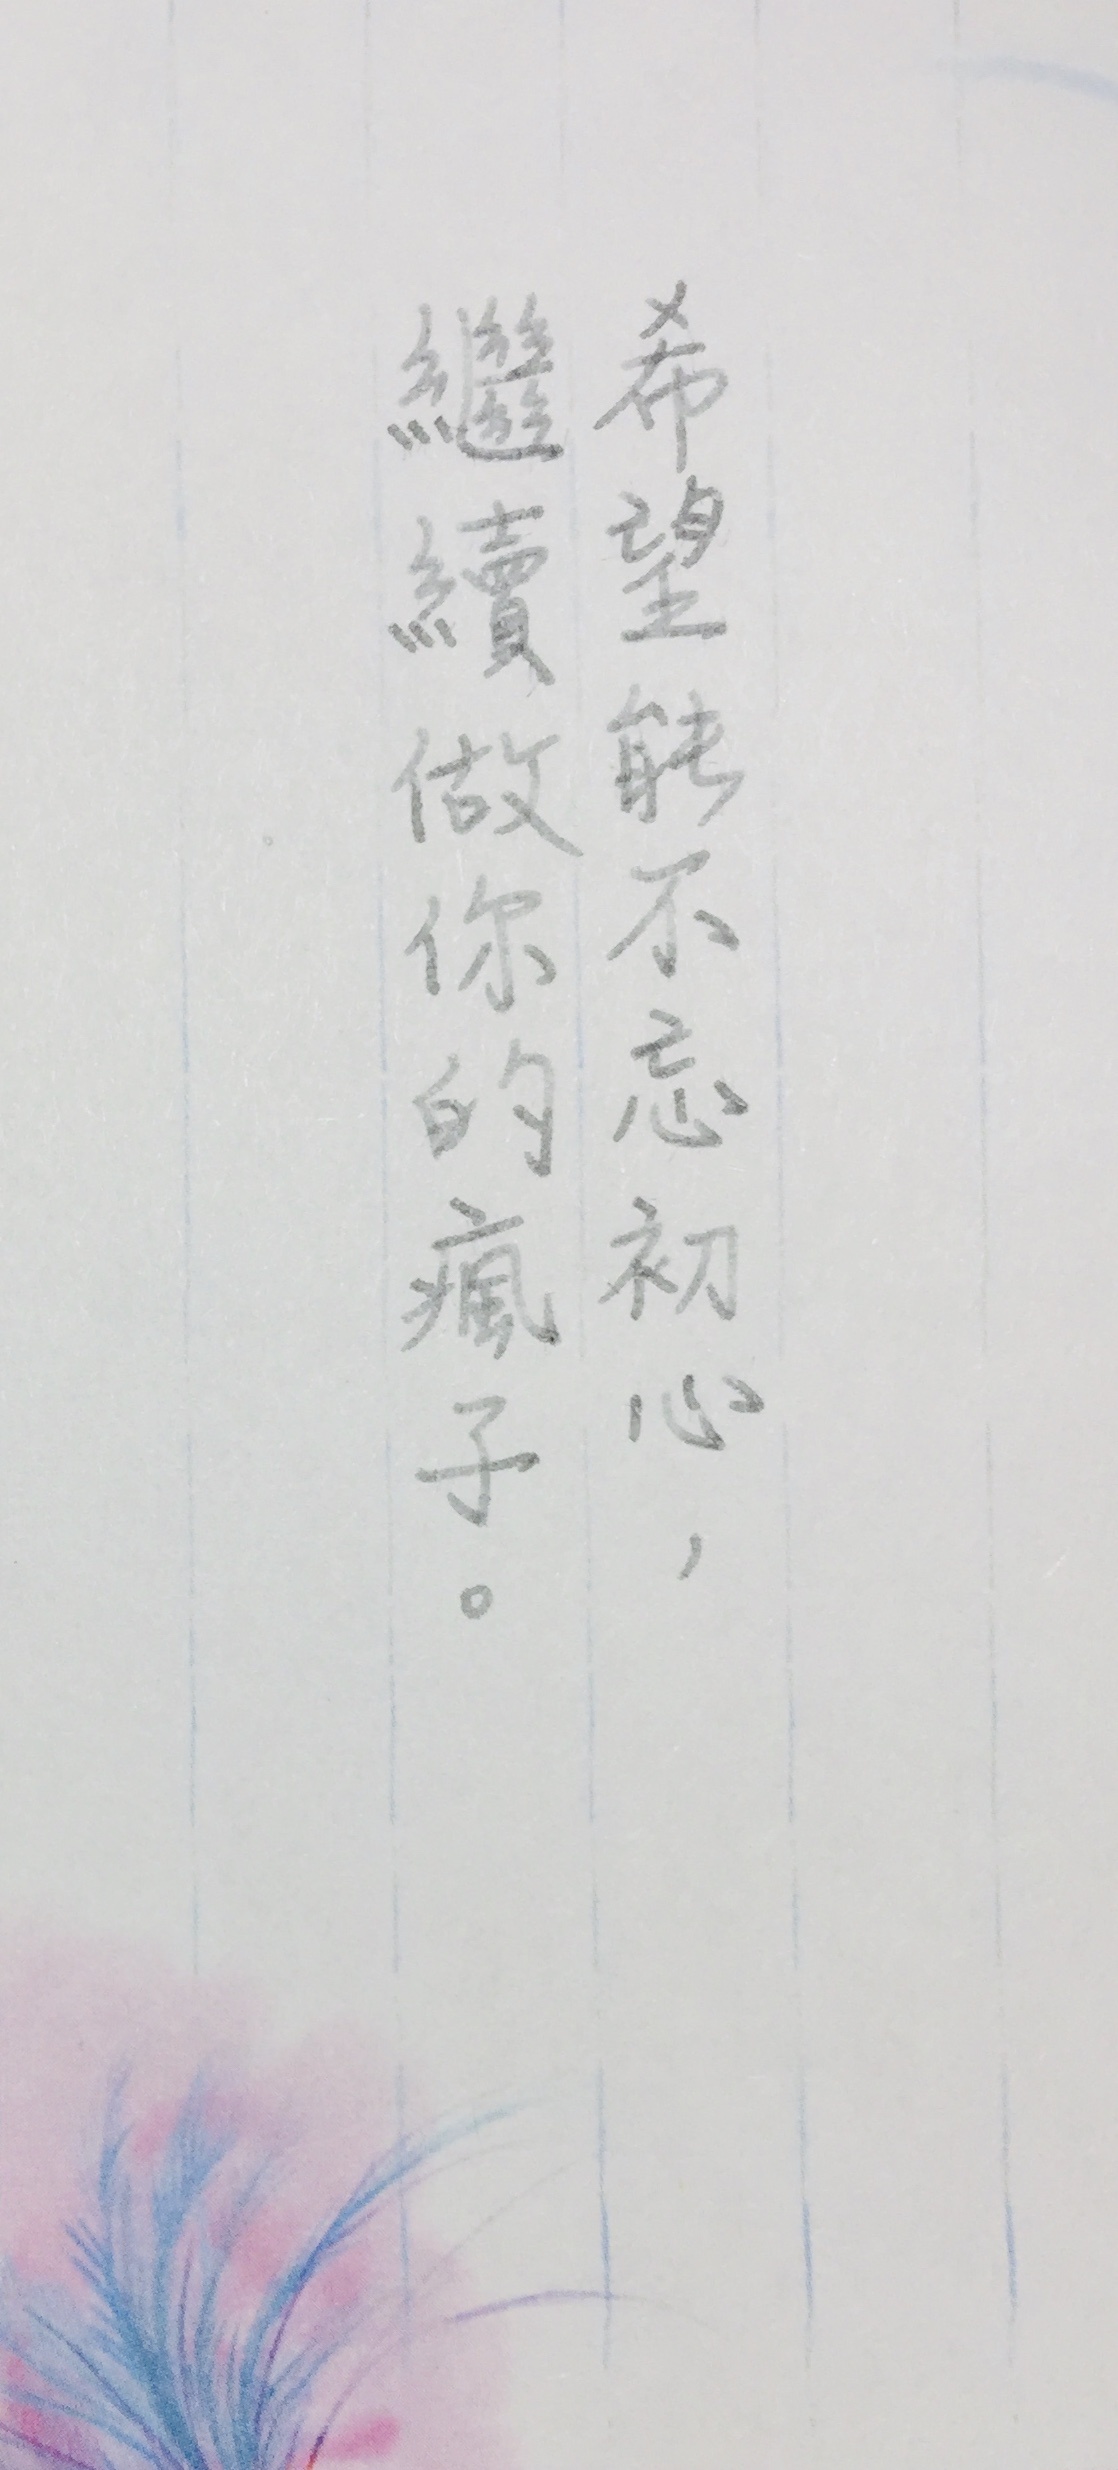 希望能不忘初心，
繼續做你的瘋子。